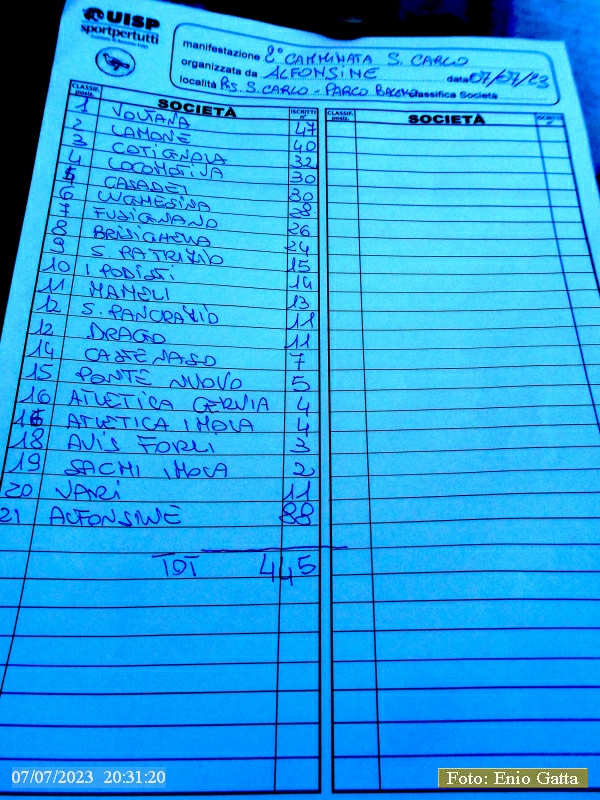 UISP
sportpertutti
manifestazione 2° CAMMINATA S. CARLO
organizzata da ALFONSINE data 07/07/23
località P.SS. CARLO - PARCO Classifica Società
CLASSIF. posiz. SOCIETÀ ISCRITTI n° CLASSIF. posiz. SOCIETÀ ISCRITTI n°
1 VOLTANA 47
2 LAMONE 40
3 COTIGNOLA 32
4 LOCOMOTIVA 30
4 CASADEI 30
6 LUGHESINA 28
7 FUSIGNANO 26
8 BRISIGHELLA 24
9 S. PATRIZIO 15
10 I PODISTI 14
11 MAMELI 13
12 S. PANCRAZIO 11
12 DRAGO 11
14 CASTENASO 7
15 PONTE NUOVO 5
16 ATLETICA CERVIA 4
16 ATLETICA IMOLA 4
18 AVIS FORLI 3
19 SACMI IMOLA 2
20 VARI 11
21 ALFONSINE 88
TOT 445
07/07/2023 20:31:20
Foto: Enio Gatta